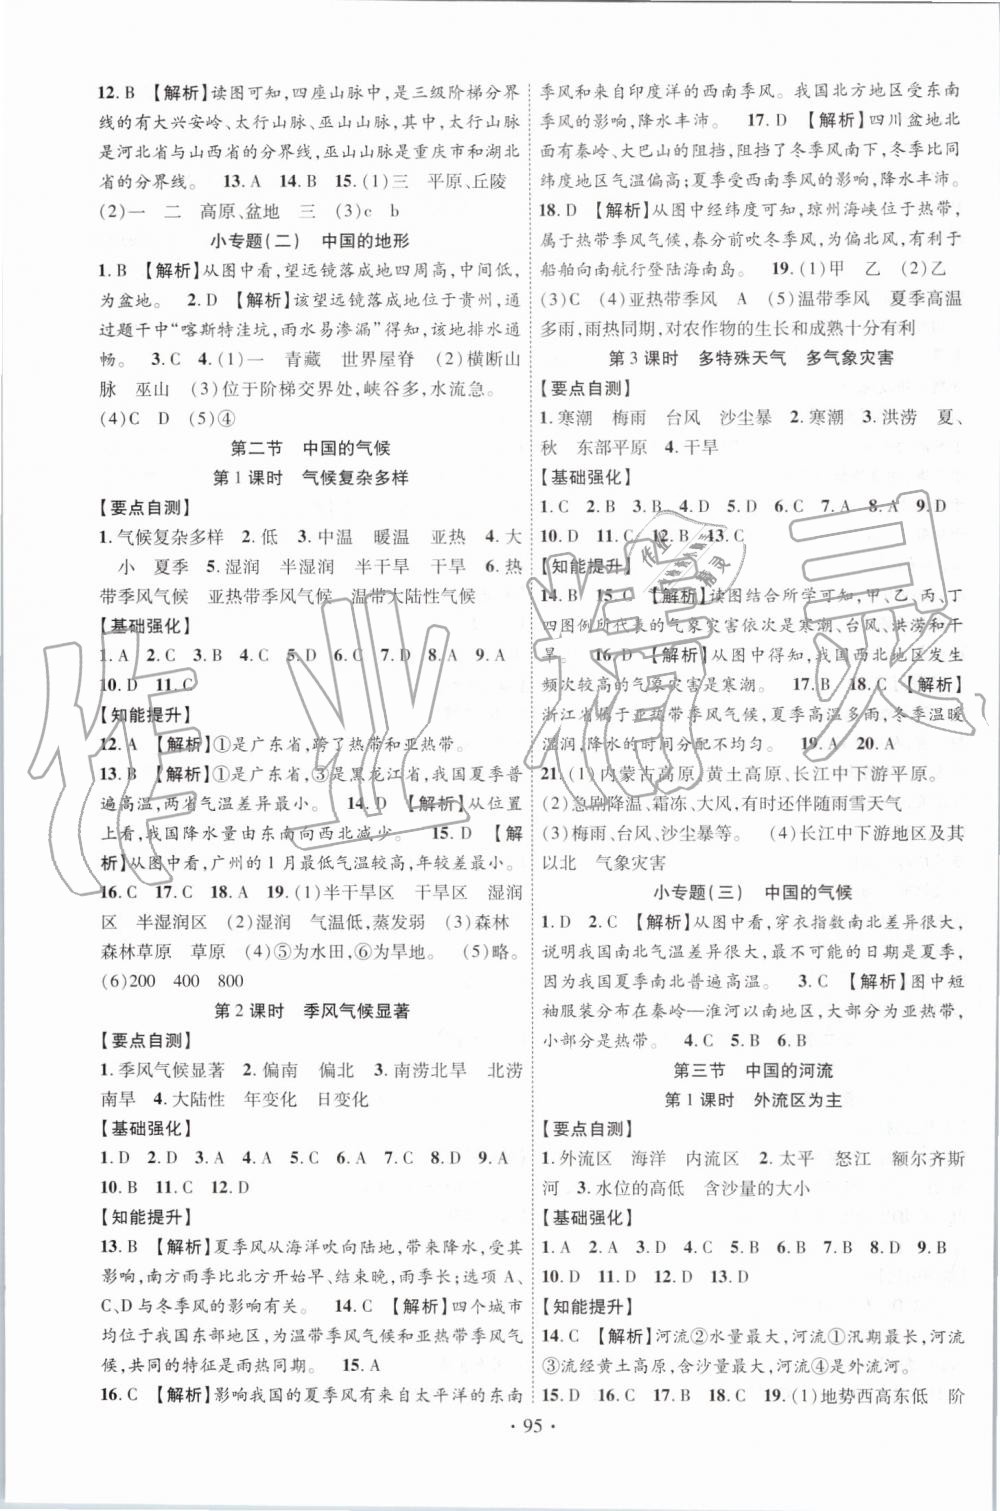 12. B 【解析】读图可知,四座山脉中,是三级阶梯分界
线的有大兴安岭、太行山脉、巫山山脉,其中,太行山脉
是河北省与山西省的分界线。巫山山脉是重庆市和湖北
省的分界线。 13. A 14. B 15. (1)三 平原、丘陵
(2)一 二 高原、盆地 三 (3)c b
小专题(二) 中国的地形
1. B 【解析】从图中看,望远镜落成地四周高,中间低,
为盆地。 2. D 【解析】该望远镜落成地位于贵州,通
过题干中“喀斯特洼坑,雨水易渗漏”得知,该地排水通
畅。 3. C 4. (1)一 青藏 世界屋脊 (2)横断山
脉 巫山 (3)位于阶梯交界处,峡谷多,水流急。
(4)C D (5)④
第二节 中国的气候
第1课时 气候复杂多样
【要点自测】
1. 气候复杂多样 2. 低 3. 中温 暖温 亚热 4. 大
小 夏季 5. 湿润 半湿润 半干旱 干旱 6. 热
带季风气候 亚热带季风气候 温带大陆性气候
【基础强化】
1. A 2. C 3. B 4. C 5. D 6. D 7. C 8. A 9. A
10. D 11. C
【知能提升】
12. A 【解析】①是广东省,跨了热带和亚热带。
13. B 【解析】①是广东省,③是黑龙江省,我国夏季普
遍高温,两省气温差异最小。 14. D 【解析】从位置
上看,我国降水量由东南向西北减少。 15. D 【解
析】从图中看,广州的1月最低气温较高,年较差最小。
16. C 17. C 18. A 19. (1)半干旱区 干旱区 湿润
区 半湿润区 (2)湿润 气温低,蒸发弱 (3)森林
森林草原 草原 (4)⑤为水田,⑥为旱地。 (5)略
(6)200 400 800
第2课时 季风气候显著
【要点自测】
1. 季风气候显著 2. 偏南 偏北 3. 南涝北旱 北涝
南旱 4. 大陆性 年变化 日变化
【基础强化】
1. D 2. D 3. A 4. A 5. C 6. A 7. C 8. D 9. A
10. B 11. C 12. D
【知能提升】
13. B 【解析】夏季风从海洋吹向陆地,带来降水,受其
影响,南方雨季比北方开始早、结束晚,雨季长;选项A、
C、D与冬季风的影响有关。 14. C 【解析】四个城市
均位于我国东部地区,为温带季风气候和亚热带季风气
候,共同的特征是雨热同期。 15. A
16. C 【解析】影响我国的夏季风有来自太平洋的东南
季风和来自印度洋的西南季风。我国北方地区受东南
季风的影响,降水丰沛。 17. D 【解析】四川盆地北
面由于秦岭、大巴山的阻挡,阻挡了冬季风南下,比同
纬度地区气温偏高;夏季受西南季风的影响,降水丰沛。
18. D 【解析】从图中经纬度可知,琼州海峡位于热带,
属于热带季风气候,春分前吹冬季风,为偏北风,有利于
船舶向南航行登陆海南岛。 19. (1)甲 乙 (2)乙
(3)C (4)亚热带季风 A (5)温带季风 夏季高温
多雨,雨热同期,对农作物的生长和成熟十分有利
第3课时 多特殊天气 多气象灾害
【要点自测】
1. 寒潮 梅雨 台风 沙尘暴 2. 寒潮 3. 洪涝 夏、
秋 东部平原 4. 干旱
【基础强化】
1. C 2. B 3. B 4. D 5. D 6. C 7. A 8. A 9. D
10. D 11. C 12. B 13. C
【知能提升】
14. B 15. C 【解析】读图结合所学可知,甲、乙、丙、丁
四图例所代表的气象灾害依次是寒潮、台风、洪涝和干
旱。 16. D 【解析】从图中得知,我国西北地区发生
频次较高的气象灾害是寒潮。 17. B 18. C 【解析】
浙江省属于亚热带季风气候,夏季高温多雨,冬季温暖
湿润,降水的时间分配不均匀。 19. A 20. A
21. (1)内蒙古高原、黄土高原、长江中下游平原。
(2)急剧降温、霜冻、大风,有时还伴随雨雪天气
(3)梅雨、台风、沙尘暴等。 (4)长江中下游地区及其
以北 气象灾害
小专题(三) 中国的气候
1. D 2. C 【解析】从图中看,穿衣指数南北差异很大,
说明我国南北气温差异很大,最不可能的日期是夏季,
因为我国夏季南北普遍高温。 3. C 【解析】图中短
袖服装分布在秦岭—淮河以南地区,大部分为亚热带,
小部分是热带。 4. C 5. B 6. B
第三节 中国的河流
第1课时 外流区为主
【要点自测】
1. 外流区 海洋 内流区 2. 太平 怒江 额尔齐斯
河 3. 水位的高低 含沙量的大小
【基础强化】
1. A 2. C 3. B 4. A 5. C 6. D 7. C 8. D 9. B
10. D 11. D 12. A 13. D
【知能提升】
14. C 【解析】河流②水量最大,河流①汛期最长,河流
③流经黄土高原,含沙量最大,河流④是外流河。
15. D 16. A 17. B 18. C 19. (1)地势西高东低 阶
· 95 ·
作业精灵
作业
精灵